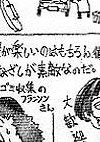 が楽しいのはもちろん
なざしが素敵なのだ。
ゴミ収集の
フランソン
さん
大